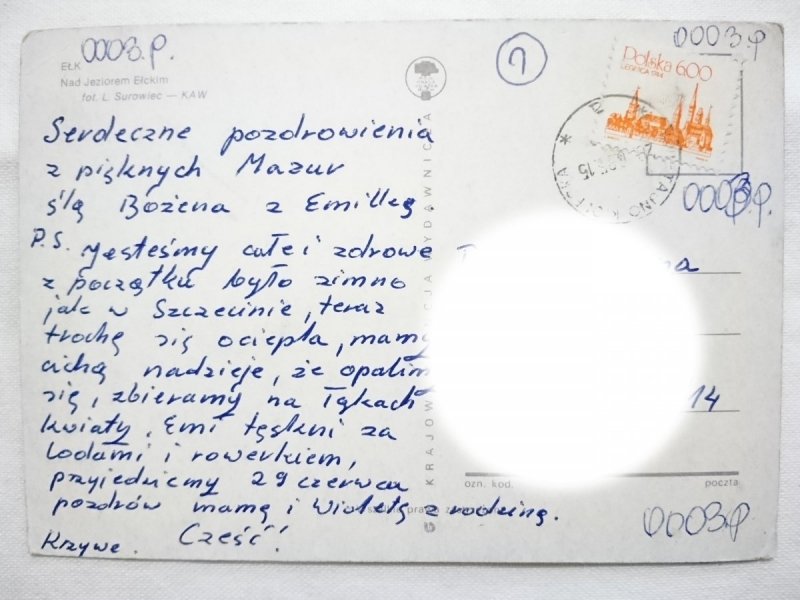 EŁK
0003.P.
Nad Jeziorem Ełckim
fot. L. Surowiec — KAW
7
0003.P
Polska 600
LEGNICA 1984
0003.P.
Serdeczne pozdrowienia
z pięknych Mazur
ślą Bożena z Emilką
P.S. Jesteśmy całe i zdrowe
z początku było zimno
jak w Szczecinie, teraz
trochę się ociepla, mamy
cichą nadzieję, że opalim
się, zbieramy na łąkach
kwiaty. Emi tęskni za
lodami i rowerkiem,
przyjedziemy 29 czerwca
pozdrów mamę i Wioletę z rodziną.
Cześć!
Krzywe.
14
ozn. kod.
poczta
0003.P